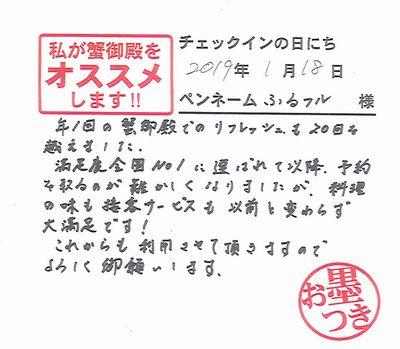 私が蟹御殿を
オススメ
します!!
チェックインの日にち
2019年 1月18日
ペンネーム ふるフル 様
年1回の蟹御殿でのリフレッシュも20回を
越えました。
満足度全国No1に選ばれて以降、予約
を取るのが難かしくなりましたが、料理
の味も接客サービスも以前と変わらず
大満足です!
これからも利用させて頂きますので
よろしく御願いします。
お墨つき